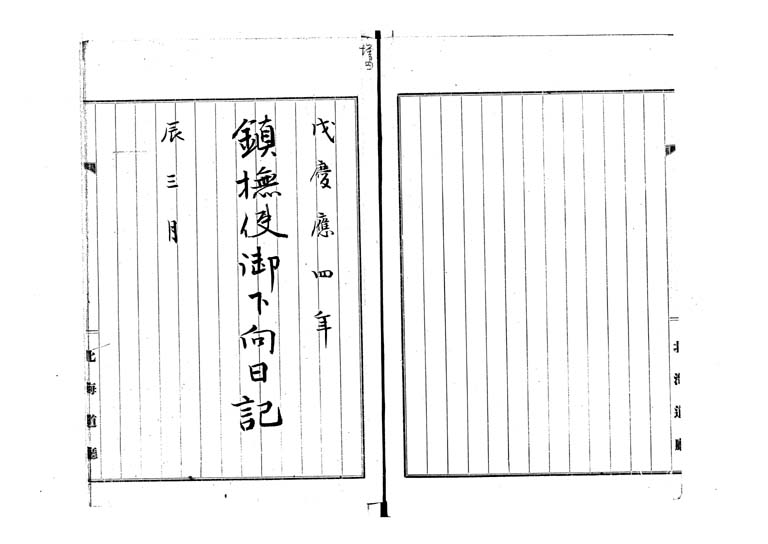 北海道廳
戊慶應四年
鎮撫使御下向日記
辰三月
北海道廳